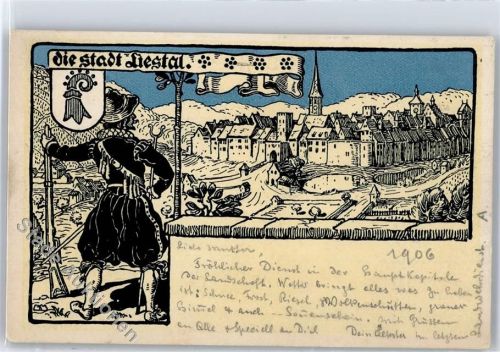 die stadt Liestal.
1906
Fröhlicher Dienst in der Hauptkapitale
der Landschaft. Wetter bringt alles was zu haben
ist: Schnee, Frost, Riegel, Wolkenschütten, grauer
Himmel & auch - Sonnenschein. mit Grüssen
an Alle & speciell an Dich